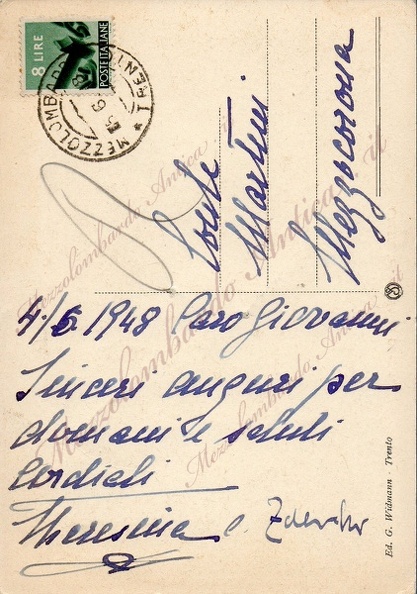 8 LIRE
POSTE ITALIANE
MEZZOLOMBARDO
TRENTO
Conte
Martini
Mezzocorona
4/6 1948 Caro Giovanni
Sinceri auguri per
domani e saluti
Cordiali
Theresina e
Ed. G. Widmann - Trento
Mezzolombardo Antica.it
Mezzolombardo Antica.it
Mezzolombardo Antica.it